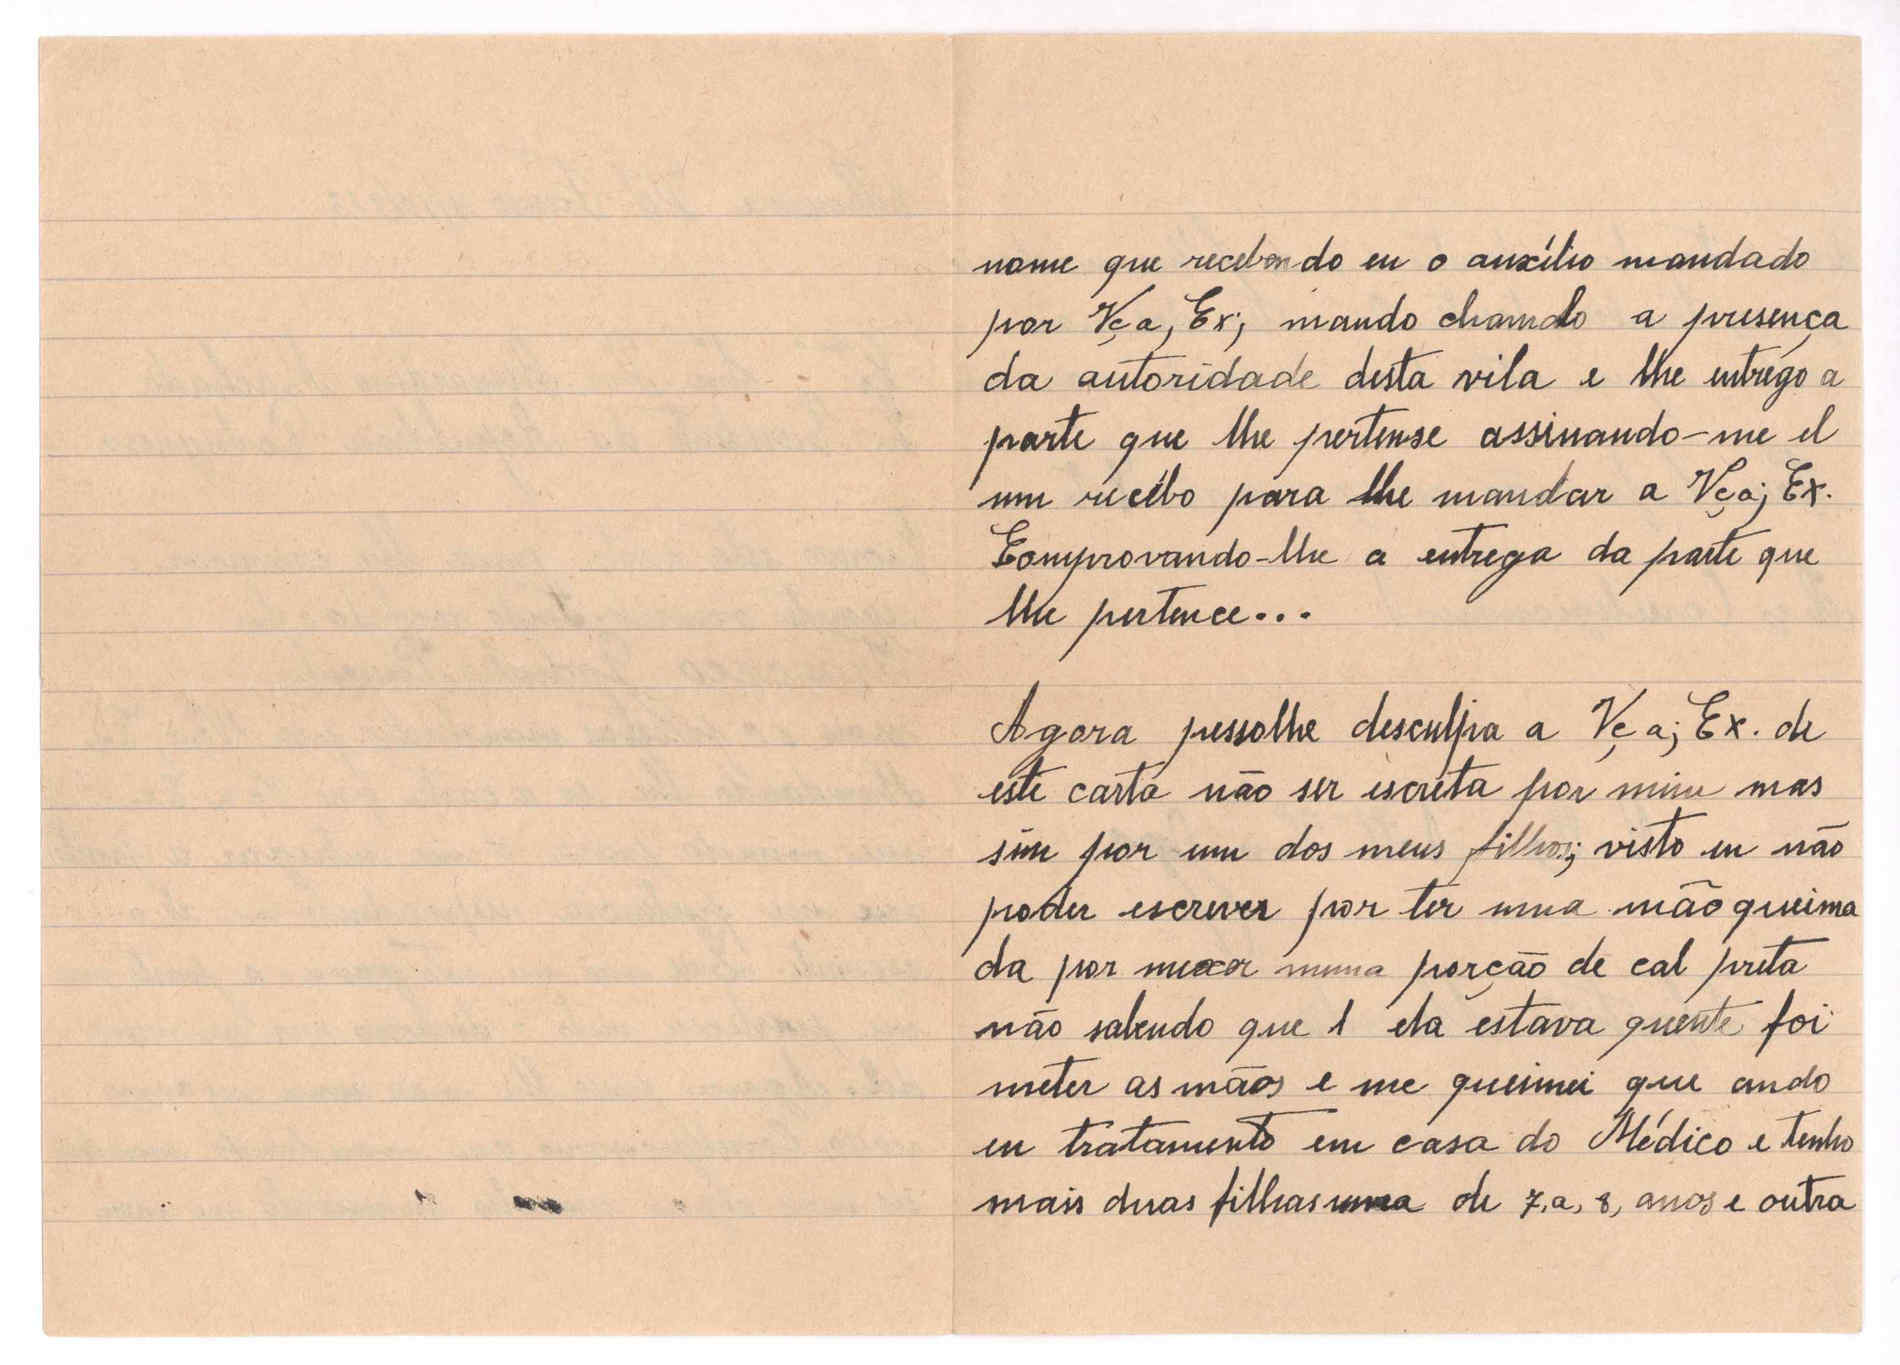 nome que recebendo eu o auxílio mandado
por Vça, Ex; mando chamalo a presença
da autoridade desta vila e lhe entrego a
parte que lhe pertense assinando-me el
um recibo para lhe mandar a Vça; Ex.
Comprovando-lhe a entrega da parte que
lhe pertence...
Agora pessolhe desculpa a Vça; Ex. de
este carta não ser escreta por mim mas
sim por um dos meus filhos; visto eu não
poder escrever por ter uma mão queima
da por mexer numa porção de cal preta
não sabendo que ela estava quente foi
meter as mãos e me queimei que ando
en tratamento em casa do Médico e tenho
mais duas filhas uma de 7, a, 8, anos e outra